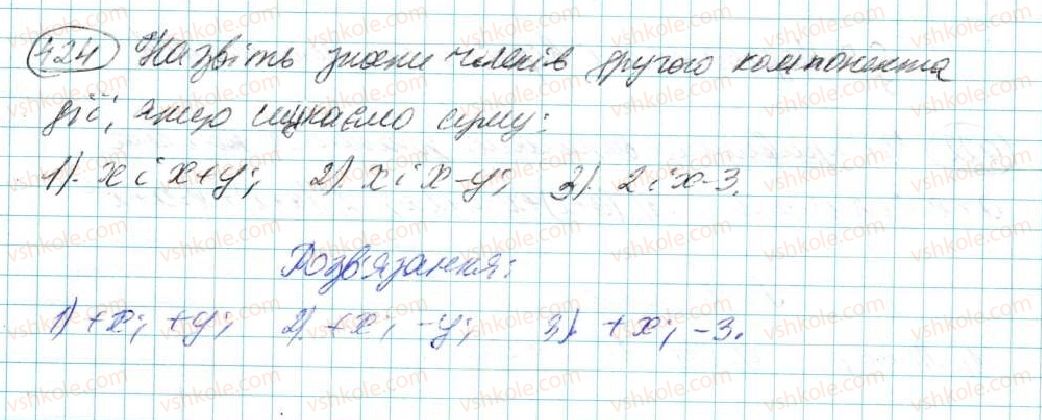 424 Назвіть знаки членів другого компонента
дії, якщо шукаємо суму:
1). х і х+у; 2). х і х-у; 3). 2 і х-3.
Розв'язання:
1) +х; +у; 2). +х; -у; 3). +х; -3.